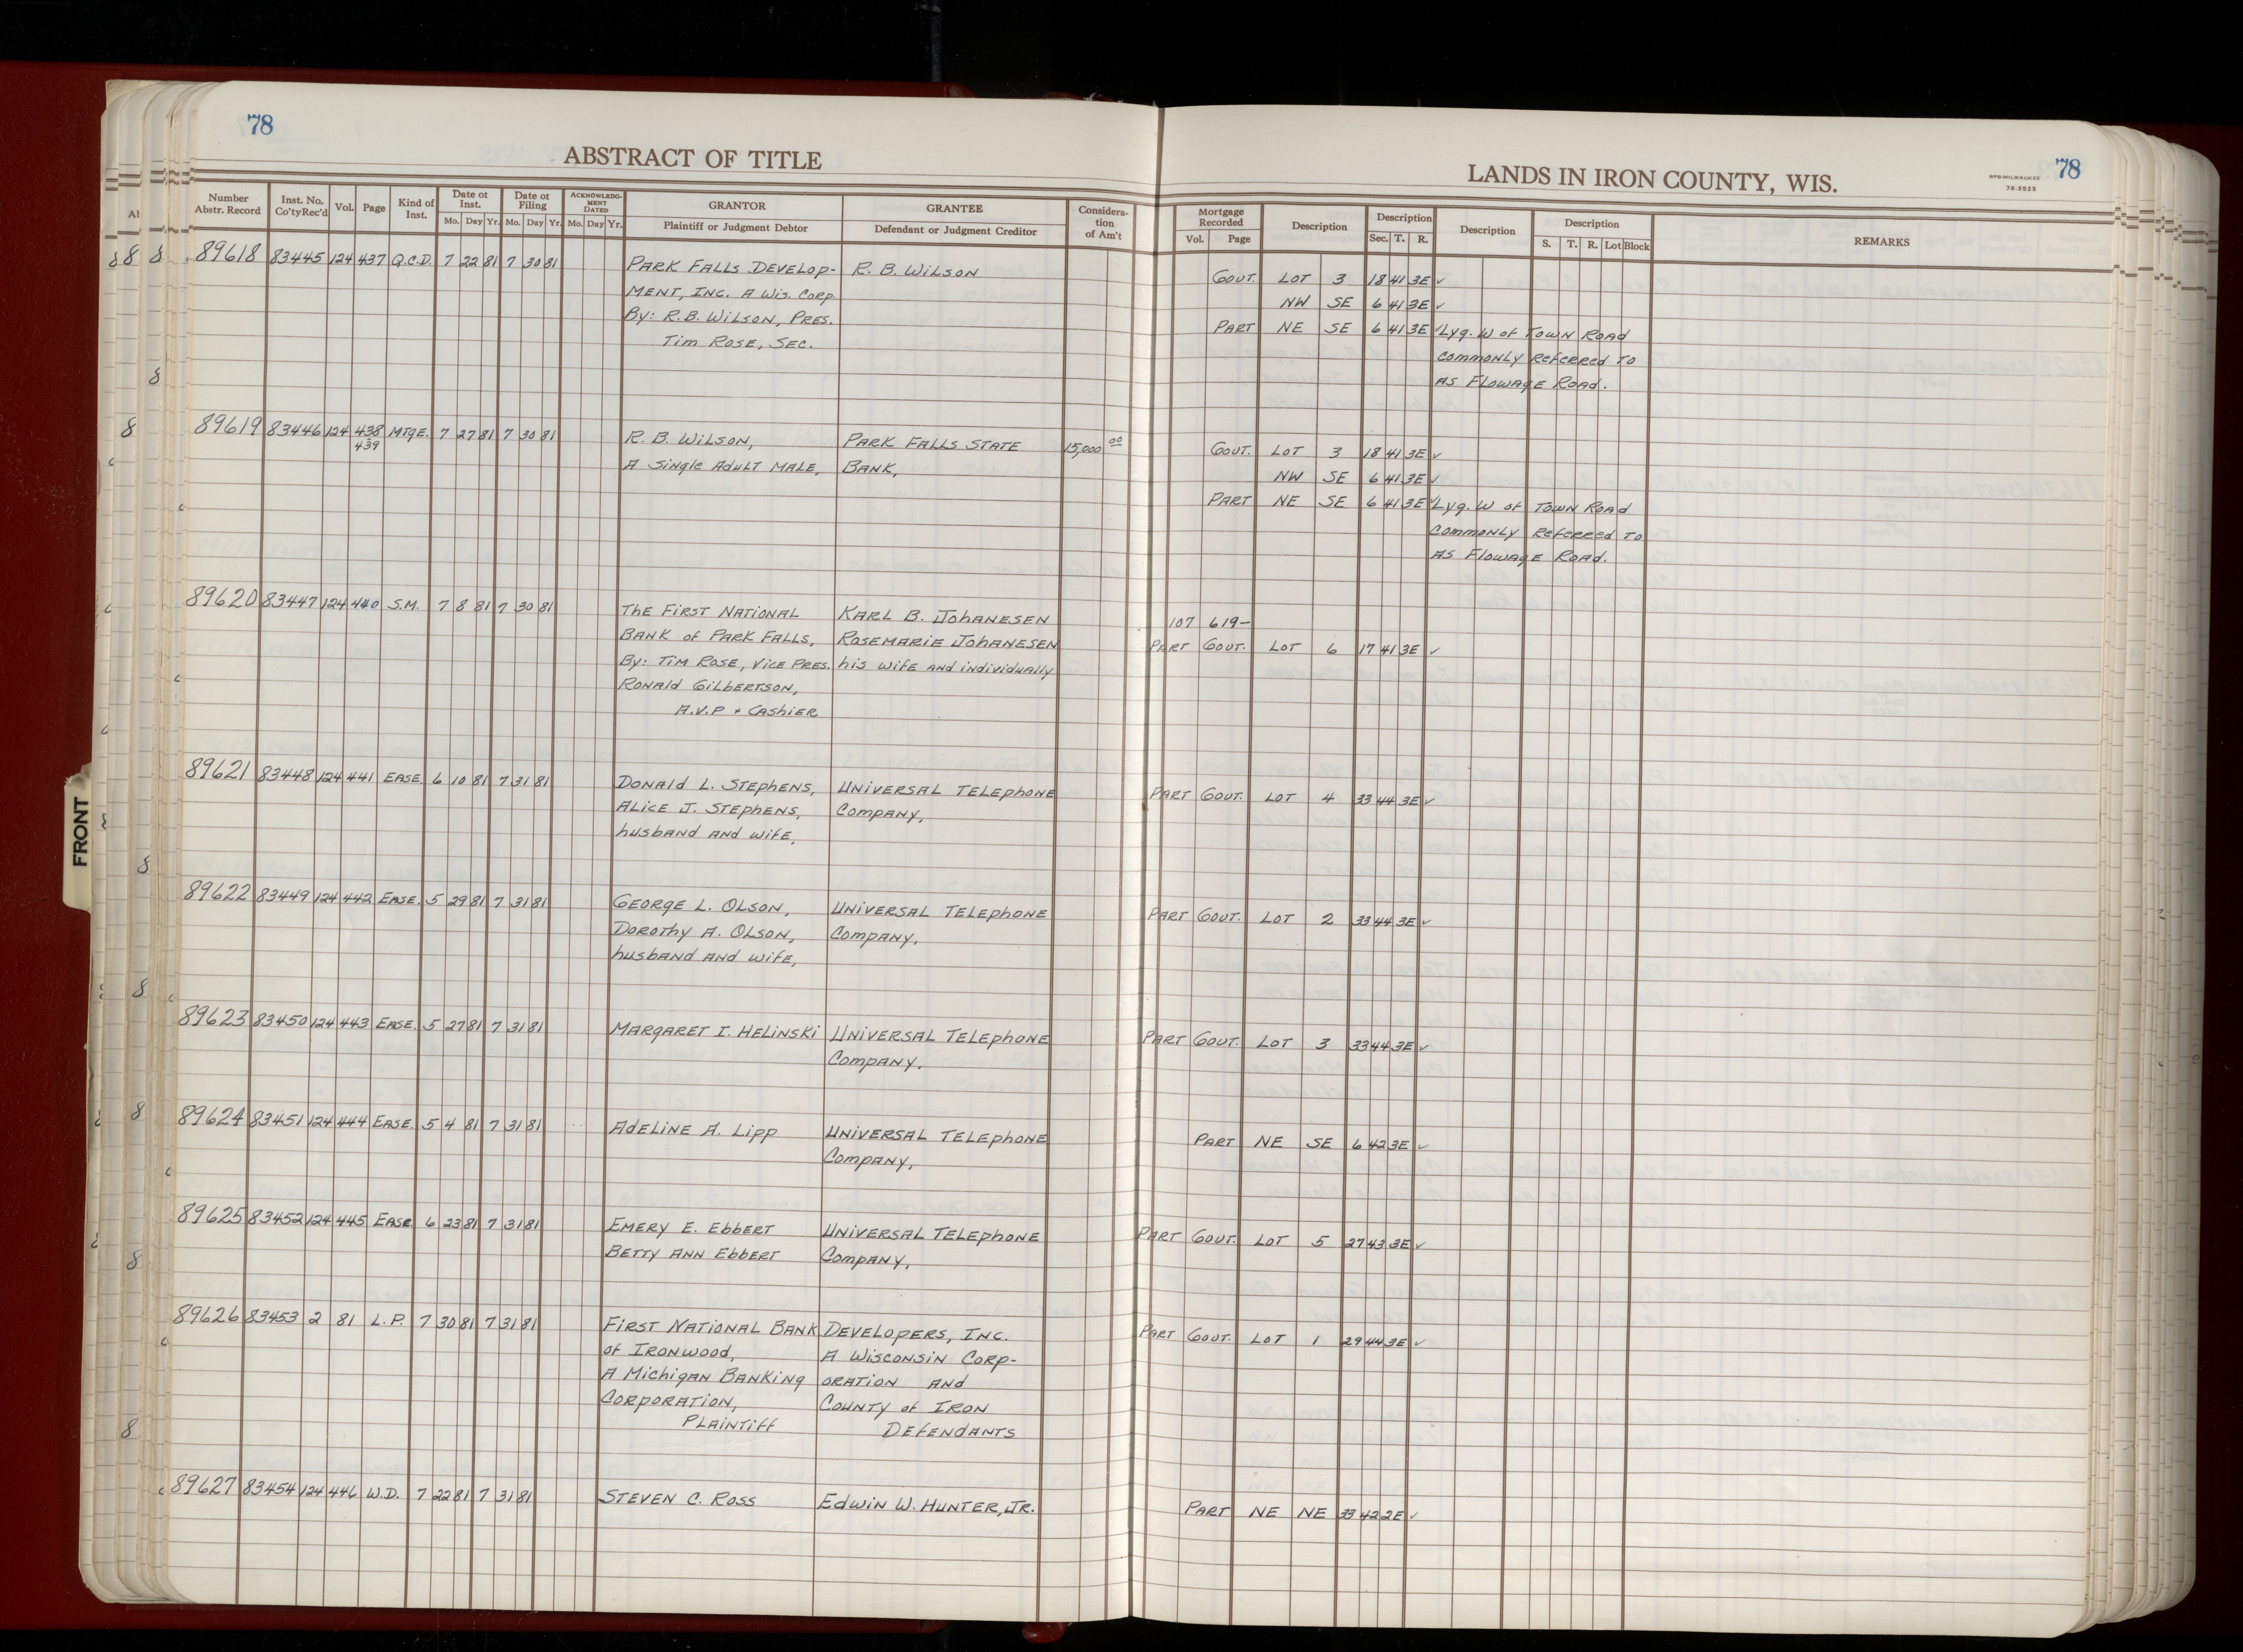 78
ABSTRACT OF TITLE
LANDS IN IRON COUNTY, WIS.
WPB-MILWAUKEE
78-3525
78
Number Abstr. Record | Inst. No. Co'ty Rec'd | Vol. | Page | Kind of Inst. | Date of Inst. Mo. Day Yr. | Date of Filing Mo. Day Yr. | ACKNOWLEDGMENT DATED Mo. Day Yr. | GRANTOR Plaintiff or Judgment Debtor | GRANTEE Defendant or Judgment Creditor | Consideration of Am't | Mortgage Recorded Vol. Page | Description | Description Sec. T. R. | Description | Description S. T. R. Lot Block | REMARKS
89618 83445 124 437 Q.C.D. 7 22 81 7 30 81 PARK FALLS DEVELOP- R. B. WILSON GOVT. LOT 3 18 41 3E ✓
MENT, INC. A Wis. Corp. NW SE 6 41 3E ✓
By: R.B. WILSON, PRES. PART NE SE 6 41 3E ✓ Lyg. W of TOWN ROAD
Tim ROSE, SEC. COMMONLY REFERRED TO
AS FLOWAGE ROAD.
89619 83446 124 438 MTGE. 7 27 81 7 30 81 R. B. WILSON, PARK FALLS STATE 15,000 00 GOVT. LOT 3 18 41 3E ✓
439 A Single Adult MALE, BANK, NW SE 6 41 3E ✓
PART NE SE 6 41 3E ✓ Lyg. W of TOWN ROAD
COMMONLY REFERRED TO
AS FLOWAGE ROAD.
89620 83447 124 440 S.M. 7 8 81 7 30 81 THE FIRST NATIONAL KARL B. JOHANESEN 107 619-
BANK of PARK FALLS, ROSEMARIE JOHANESEN PART GOVT. LOT 6 17 41 3E ✓
By: TIM ROSE, VICE PRES. his wife AND individually
RONALD GILBERTSON,
A.V.P + CASHIER
89621 83448 124 441 EASE. 6 10 81 7 31 81 DONALD L. STEPHENS, UNIVERSAL TELEPHONE PART GOVT. LOT 4 33 44 3E ✓
ALICE J. STEPHENS, COMPANY,
husband AND wife,
89622 83449 124 442 EASE. 5 29 81 7 31 81 GEORGE L. OLSON, UNIVERSAL TELEPHONE PART GOVT. LOT 2 33 44 3E ✓
DOROTHY A. OLSON, COMPANY,
husband AND wife,
89623 83450 124 443 EASE. 5 27 81 7 31 81 MARGARET I. HELINSKI UNIVERSAL TELEPHONE PART GOVT. LOT 3 33 44 3E ✓
COMPANY,
89624 83451 124 444 EASE. 5 4 81 7 31 81 ADELINE A. LIPP UNIVERSAL TELEPHONE PART NE SE 6 42 3E ✓
COMPANY,
89625 83452 124 445 EASE 6 23 81 7 31 81 EMERY E. EBBERT UNIVERSAL TELEPHONE PART GOVT. LOT 5 27 43 3E ✓
BETTY ANN EBBERT COMPANY,
89626 83453 2 81 L.P. 7 30 81 7 31 81 FIRST NATIONAL BANK DEVELOPERS, INC. PART GOVT. LOT 1 29 44 3E ✓
of IRONWOOD, A WISCONSIN CORP-
A MICHIGAN BANKING ORATION AND
CORPORATION, COUNTY of IRON
PLAINTIFF DEFENDANTS
89627 83454 124 446 W.D. 7 22 81 7 31 81 STEVEN C. ROSS EDWIN W. HUNTER, JR. PART NE NE 33 42 2E ✓
FRONT